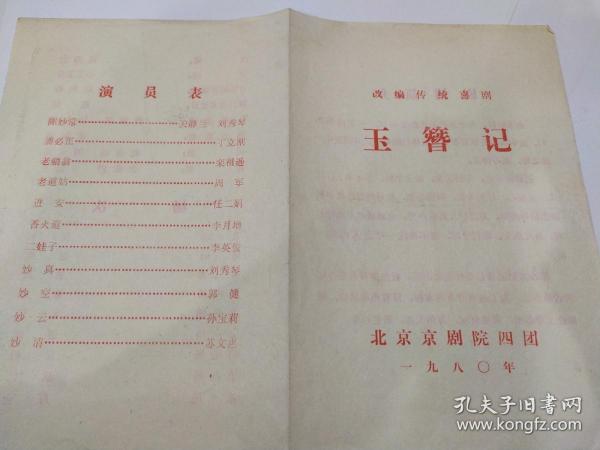 演员表
陈妙常 关静兰 刘秀琴
潘必正 丁立刚
老艄翁 栾祖逊
老道姑 周军
进安 任二娟
香火道 李月增
二娃子 李英俊
妙真 刘秀琴
妙空 郭健
妙云 孙宝莉
妙清 苏文忠
改编传统喜剧
玉簪记
北京京剧院四团
一九八〇年
孔夫子旧书网
www.kongfz.com